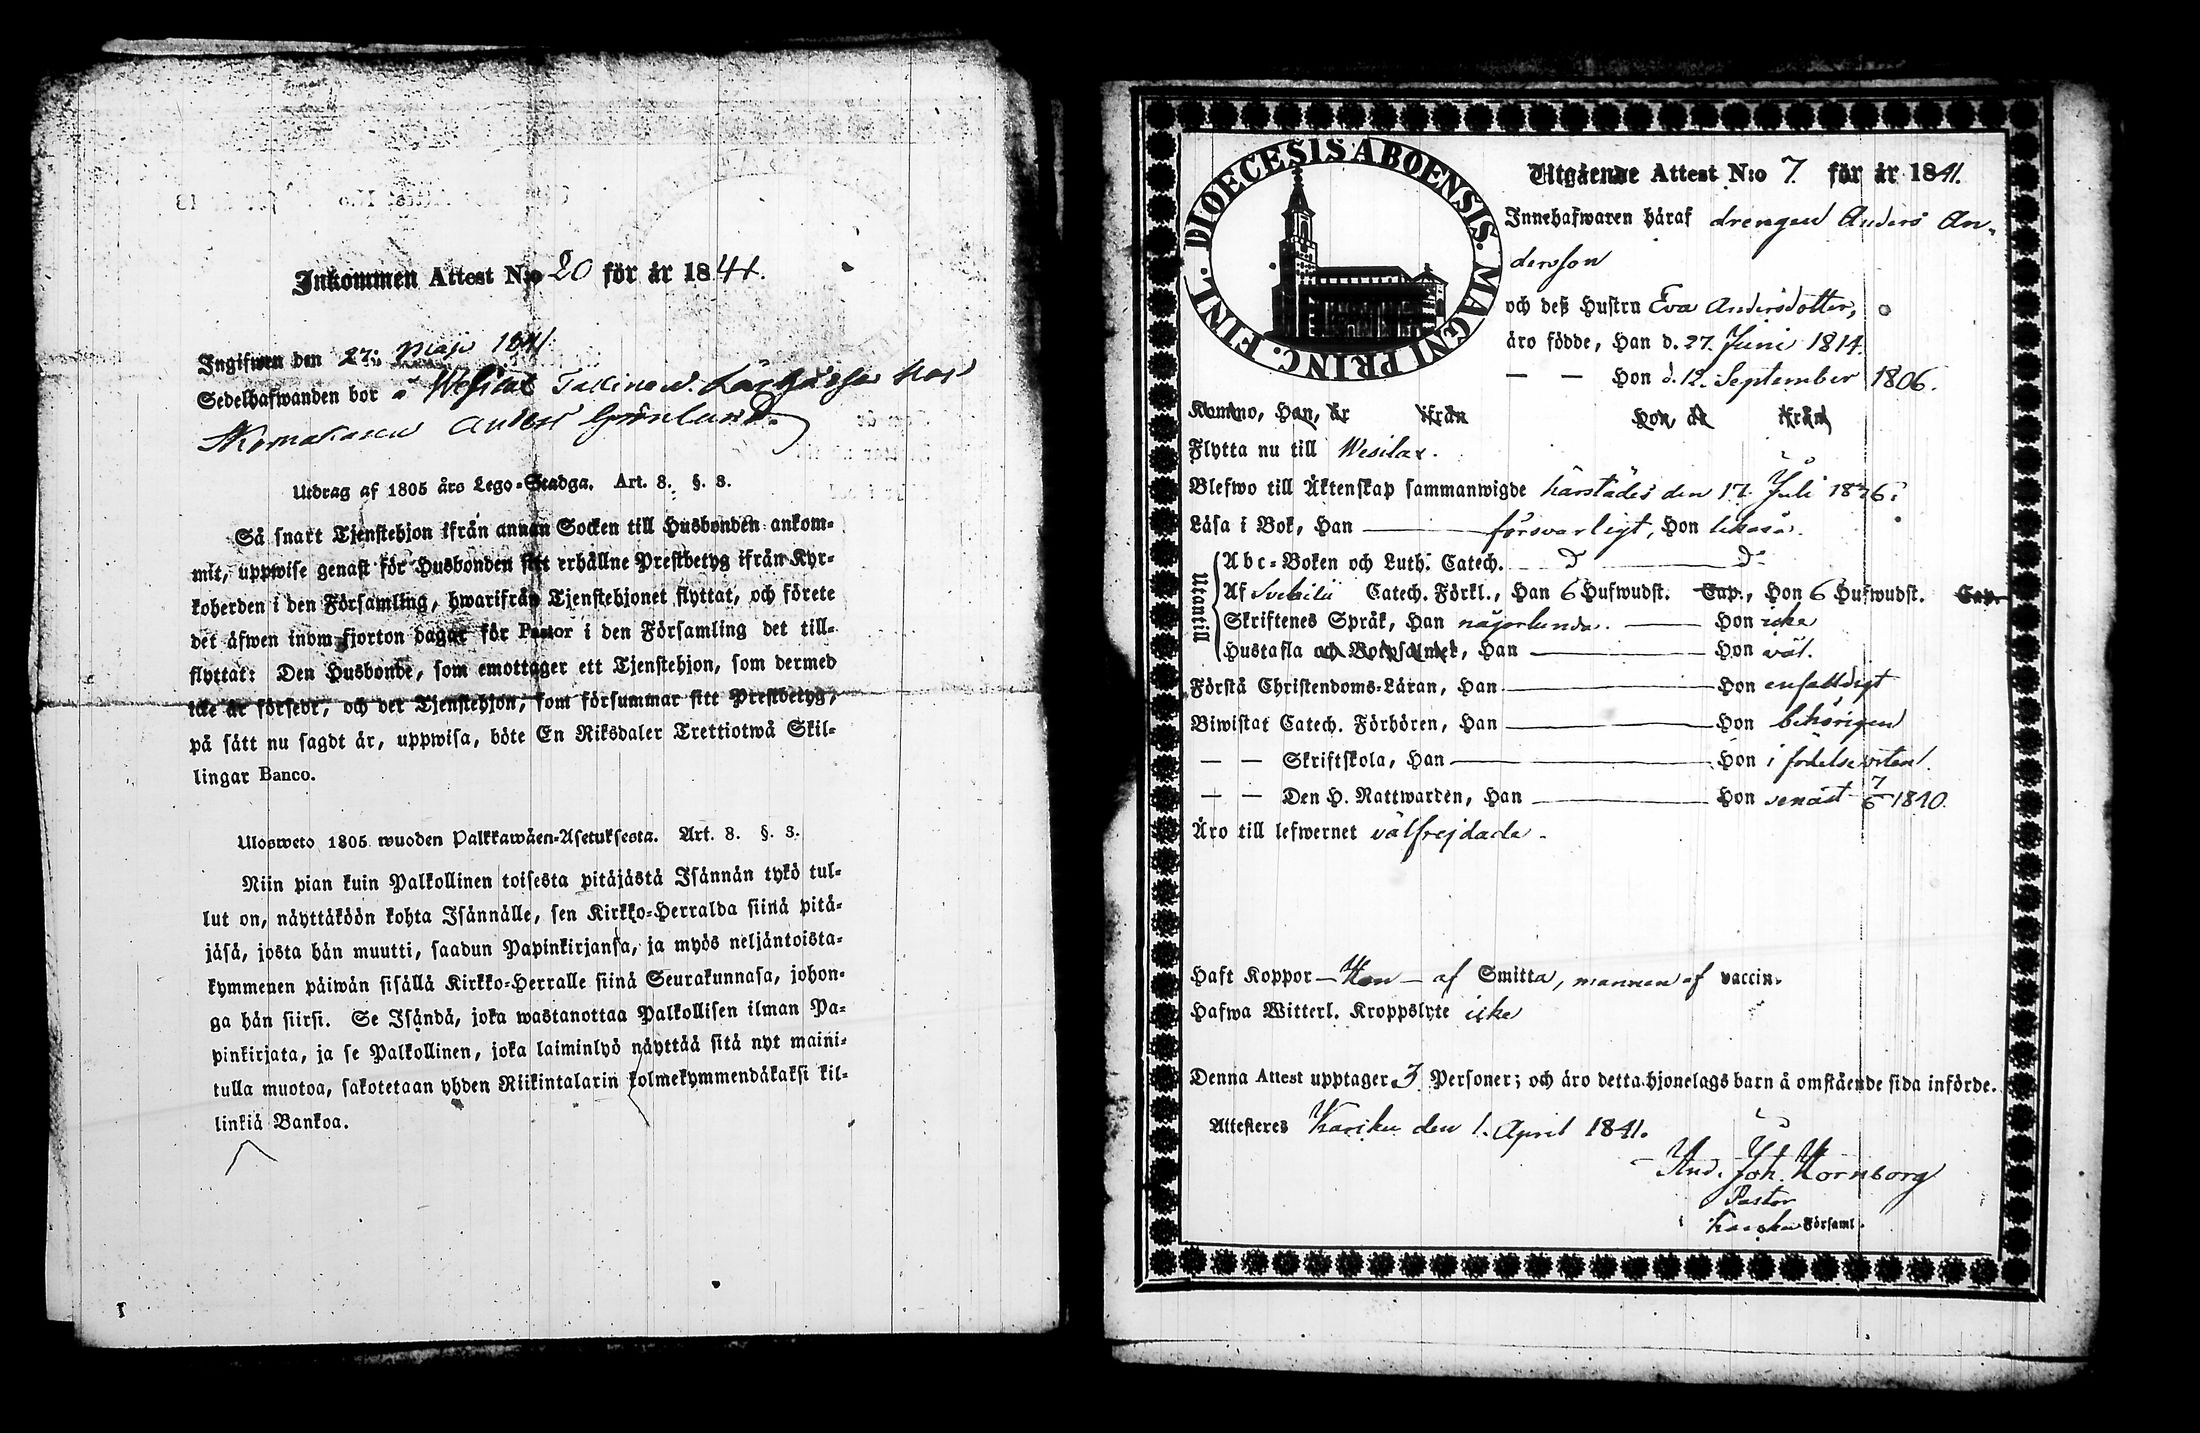 Inkommen Attest N:o 20 för år 1841.
Ingifwen den 27: Maji 1841
Sedelhafwanden bor å Wesilax hos
Skomakaren Grönlund.
Utdrag af 1805 års Lego-Stadga. Art. 8. §. 3.
Så snart Tjenstehjon ifrån annan Socken till Husbonden ankom-
mit, uppwise genast för Husbonden sitt erhållne Prestbetyg ifrån Kyr-
koherden i den Församling, hwarifrån Tjenstehjonet flyttat, och förete
det äfwen inom fjorton dagar för Pastor i den Församling det till-
flyttat: Den Husbonde, som emottager ett Tjenstehjon, som dermed
icke är försedt, och det Tjenstehjon, som försummar sitt Prestbetyg,
på sätt nu sagdt är, uppwisa, böte En Riksdaler Trettiotwå Skil-
lingar Banco.
Ulosweto 1805 wuoden Palkkawäen-Asetuksesta. Art. 8. §. 3.
Niin pian kuin Palkollinen toisesta pitäjästä Isännän tykö tul-
lut on, näyttäköön kohta Isännälle, sen Kirkko-Herralda siinä pitä-
jäsä, josta hän muutti, saadun Papinkirjansa, ja myös neljäntoista-
kymmenen päiwän sisällä Kirkko-Herralle siinä Seurakunnasa, johon-
ga hän siirsi. Se Isändä, joka wastanottaa Palkollisen ilman Pa-
pinkirjata, ja se Palkollinen, joka laiminlyö näyttää sitä nyt maini-
tulla muotoa, sakotetaan yhden Riikintalarin kolmekymmendäkaksi kil-
linkiä Bankoa.
DIOECESIS ABOENSIS. MAGNI PRINC. FINL.
Utgående Attest N:o 7. för år 1841.
Innehafwaren häraf drengen Anders An-
dersson
och deß Hustru Eva Andersdotter,
äro födde, Han d. 27. Juni 1814.
— — Hon d. 12. September 1806.
Kommo, Han, år ifrån Hon, år ifrån
Flytta nu till Wesilax.
Blefwo till Äktenskap sammanwigde härstädes den 17. Juli 1836.
Läsa i Bok, Han — försvarligt, Hon likaså.
Utantill
Abc-Boken och Luth. Catech. D:o — D:o
Af Svebilii Catech. Förkl., Han 6 Hufwudst. Cap., Hon 6 Hufwudst. Cap.
Skriftenes Språk, Han någorlunda. — Hon icke
Hustafla och Botpsalmer, Han — Hon väl.
Förstå Christendoms-Läran, Han — Hon enfaldigt
Biwistat Catech. Förhören, Han — Hon behörigen
— — Skriftskola, Han — Hon i födelseorten
— — Den H. Nattwarden, Han — Hon senast 7/6 1840.
Äro till lefwernet välfrejdade.
Haft Koppor — Hon — af Smitta, mannen af vaccin.
Hafwa Witterl. Kroppslyte icke
Denna Attest upptager 3 Personer; och äro detta hjonelags barn å omstående sida införde.
Attesteres Karku den 1. April 1841.
And. Joh. Hornborg
Pastor
i Karku Församl.